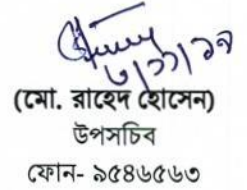 ৬/১১/১৯
(মো. রাহেদ হোসেন)
উপসচিব
ফোন- ৯৫৪৬৫৬৩